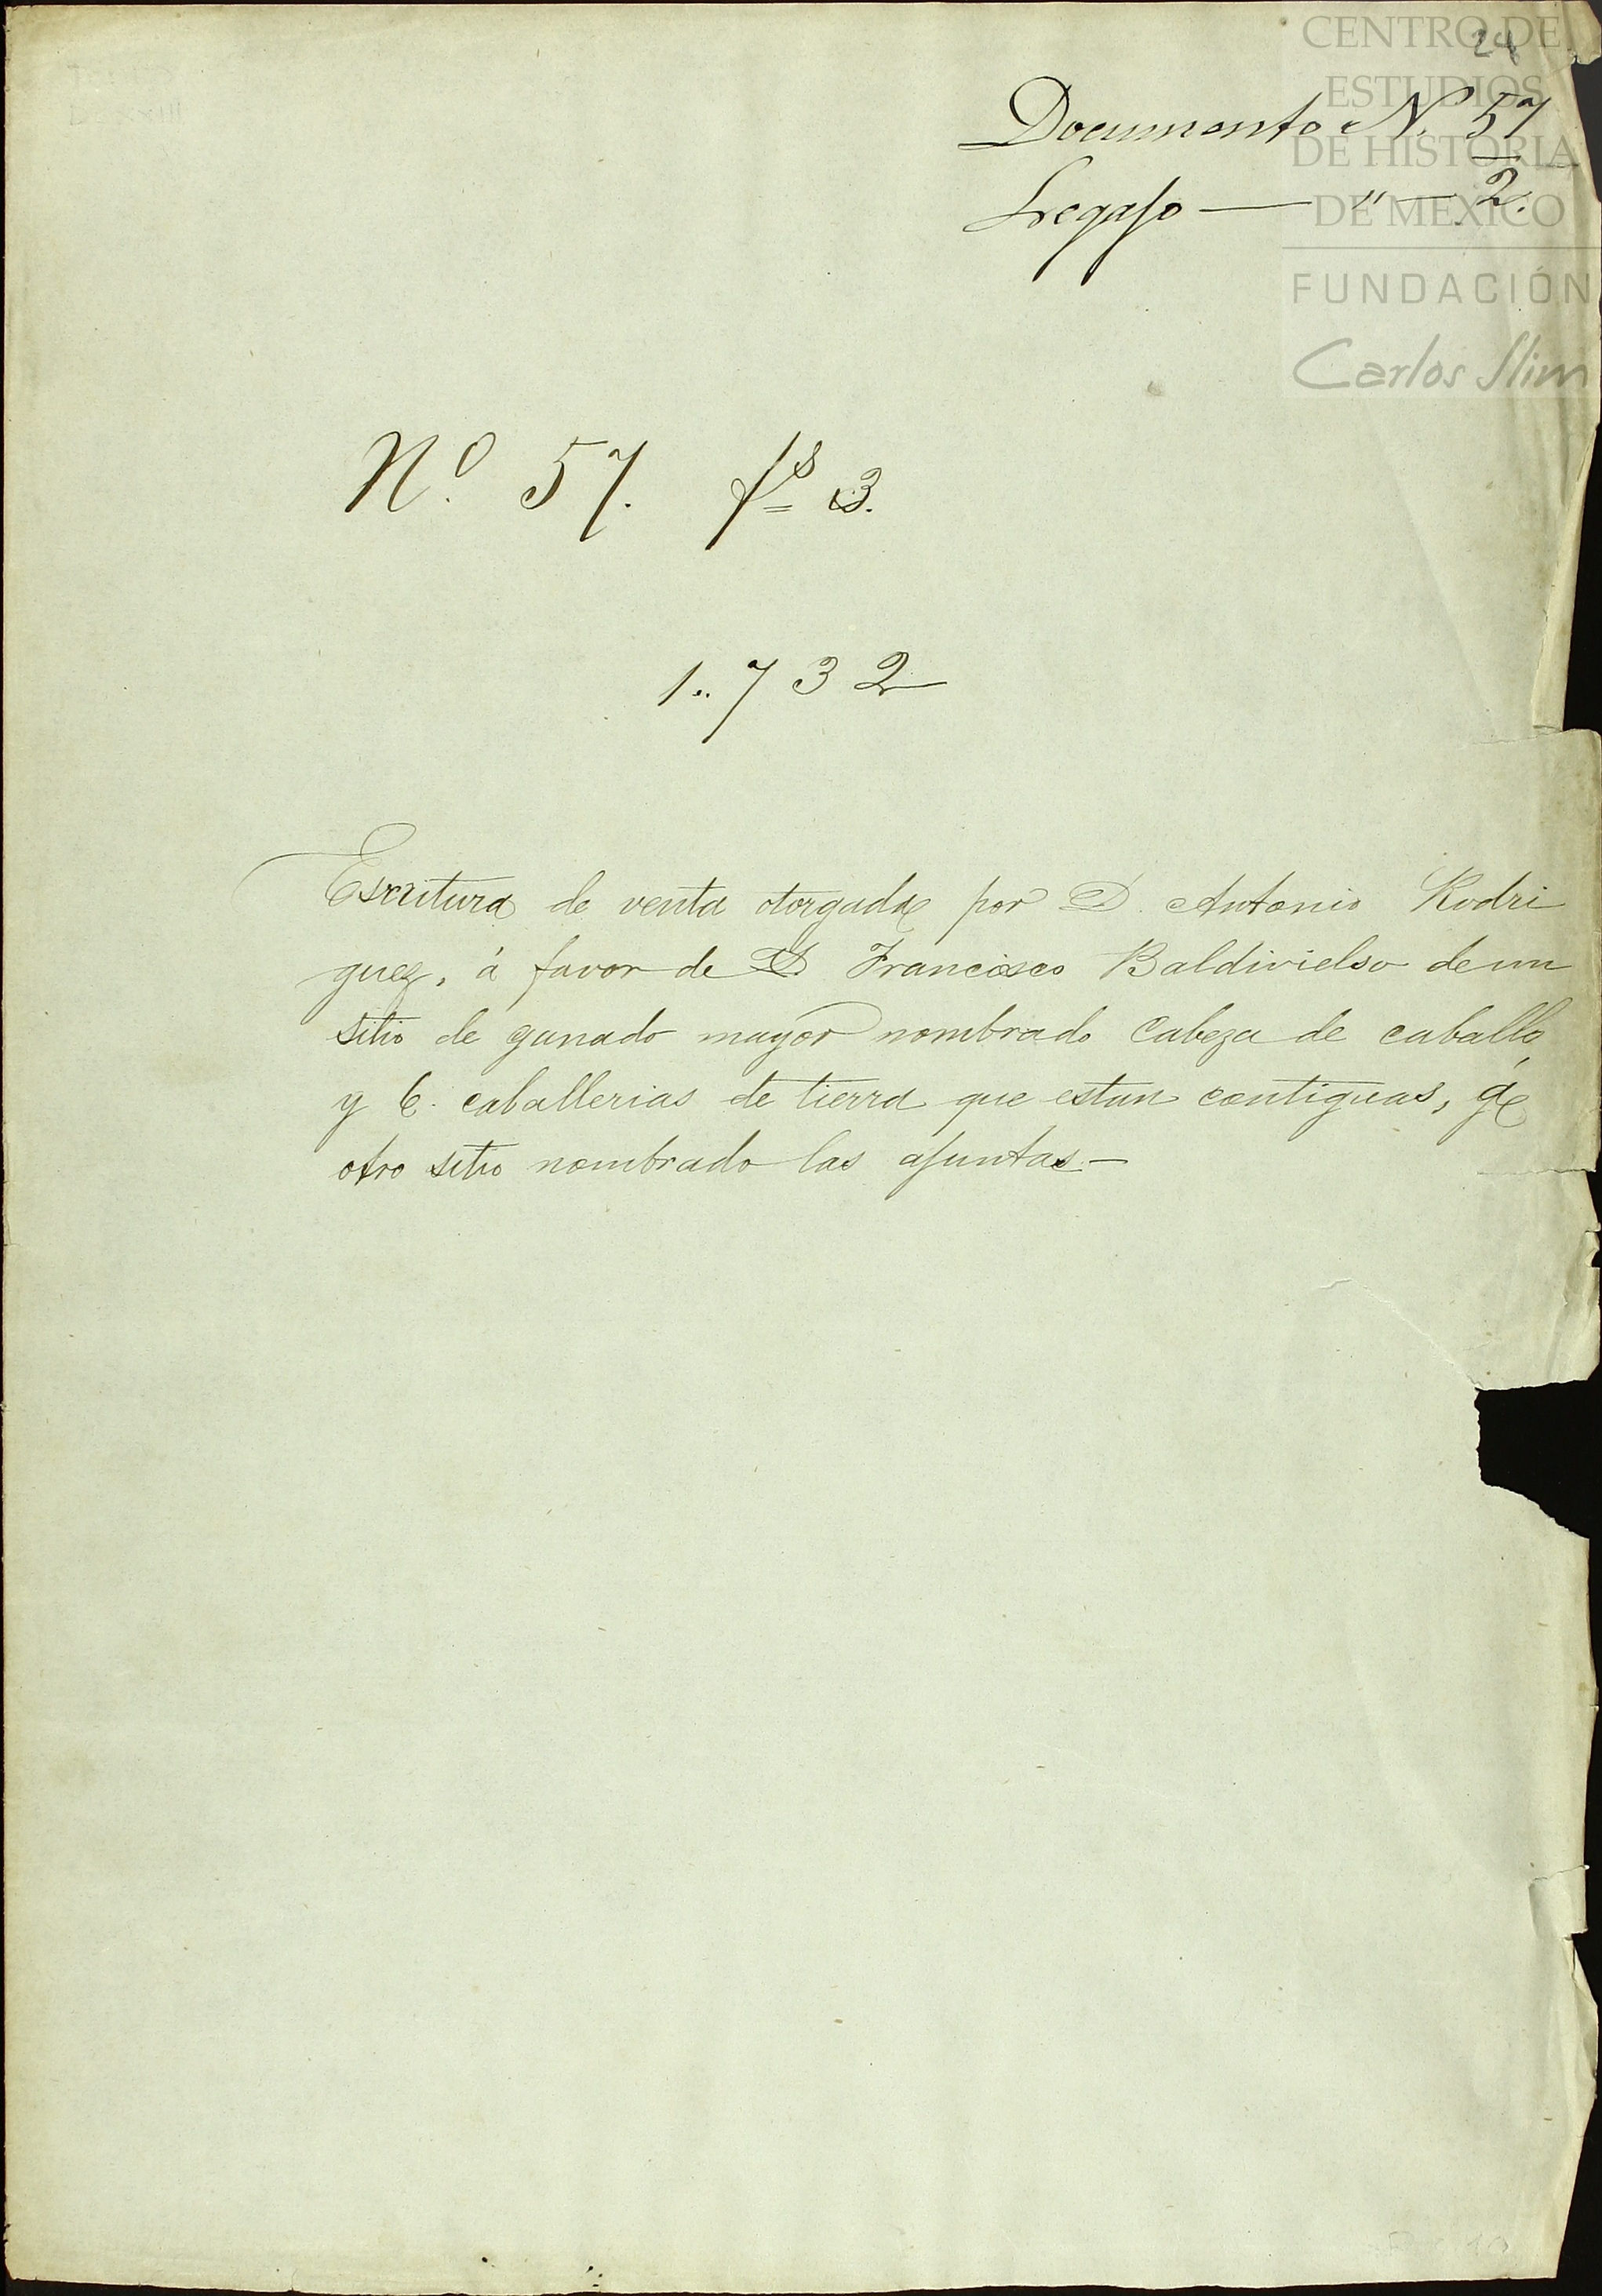 24
CENTRO DE
ESTUDIOS
DE HISTORIA
DE MEXICO
FUNDACIÓN
Carlos Slim
Documento N. 57
Legajo — " — 2.
Nº. 57. fs 3.
1..732
Escritura de venta otorgada por D. Antonio Rodri
guez, á favor de D Francisco Baldivielso de un
sitio de ganado mayor nombrado Cabeza de caballo
y 6. caballerias de tierra que estan contiguas, á
otro sitio nombrado las ajuntas.—